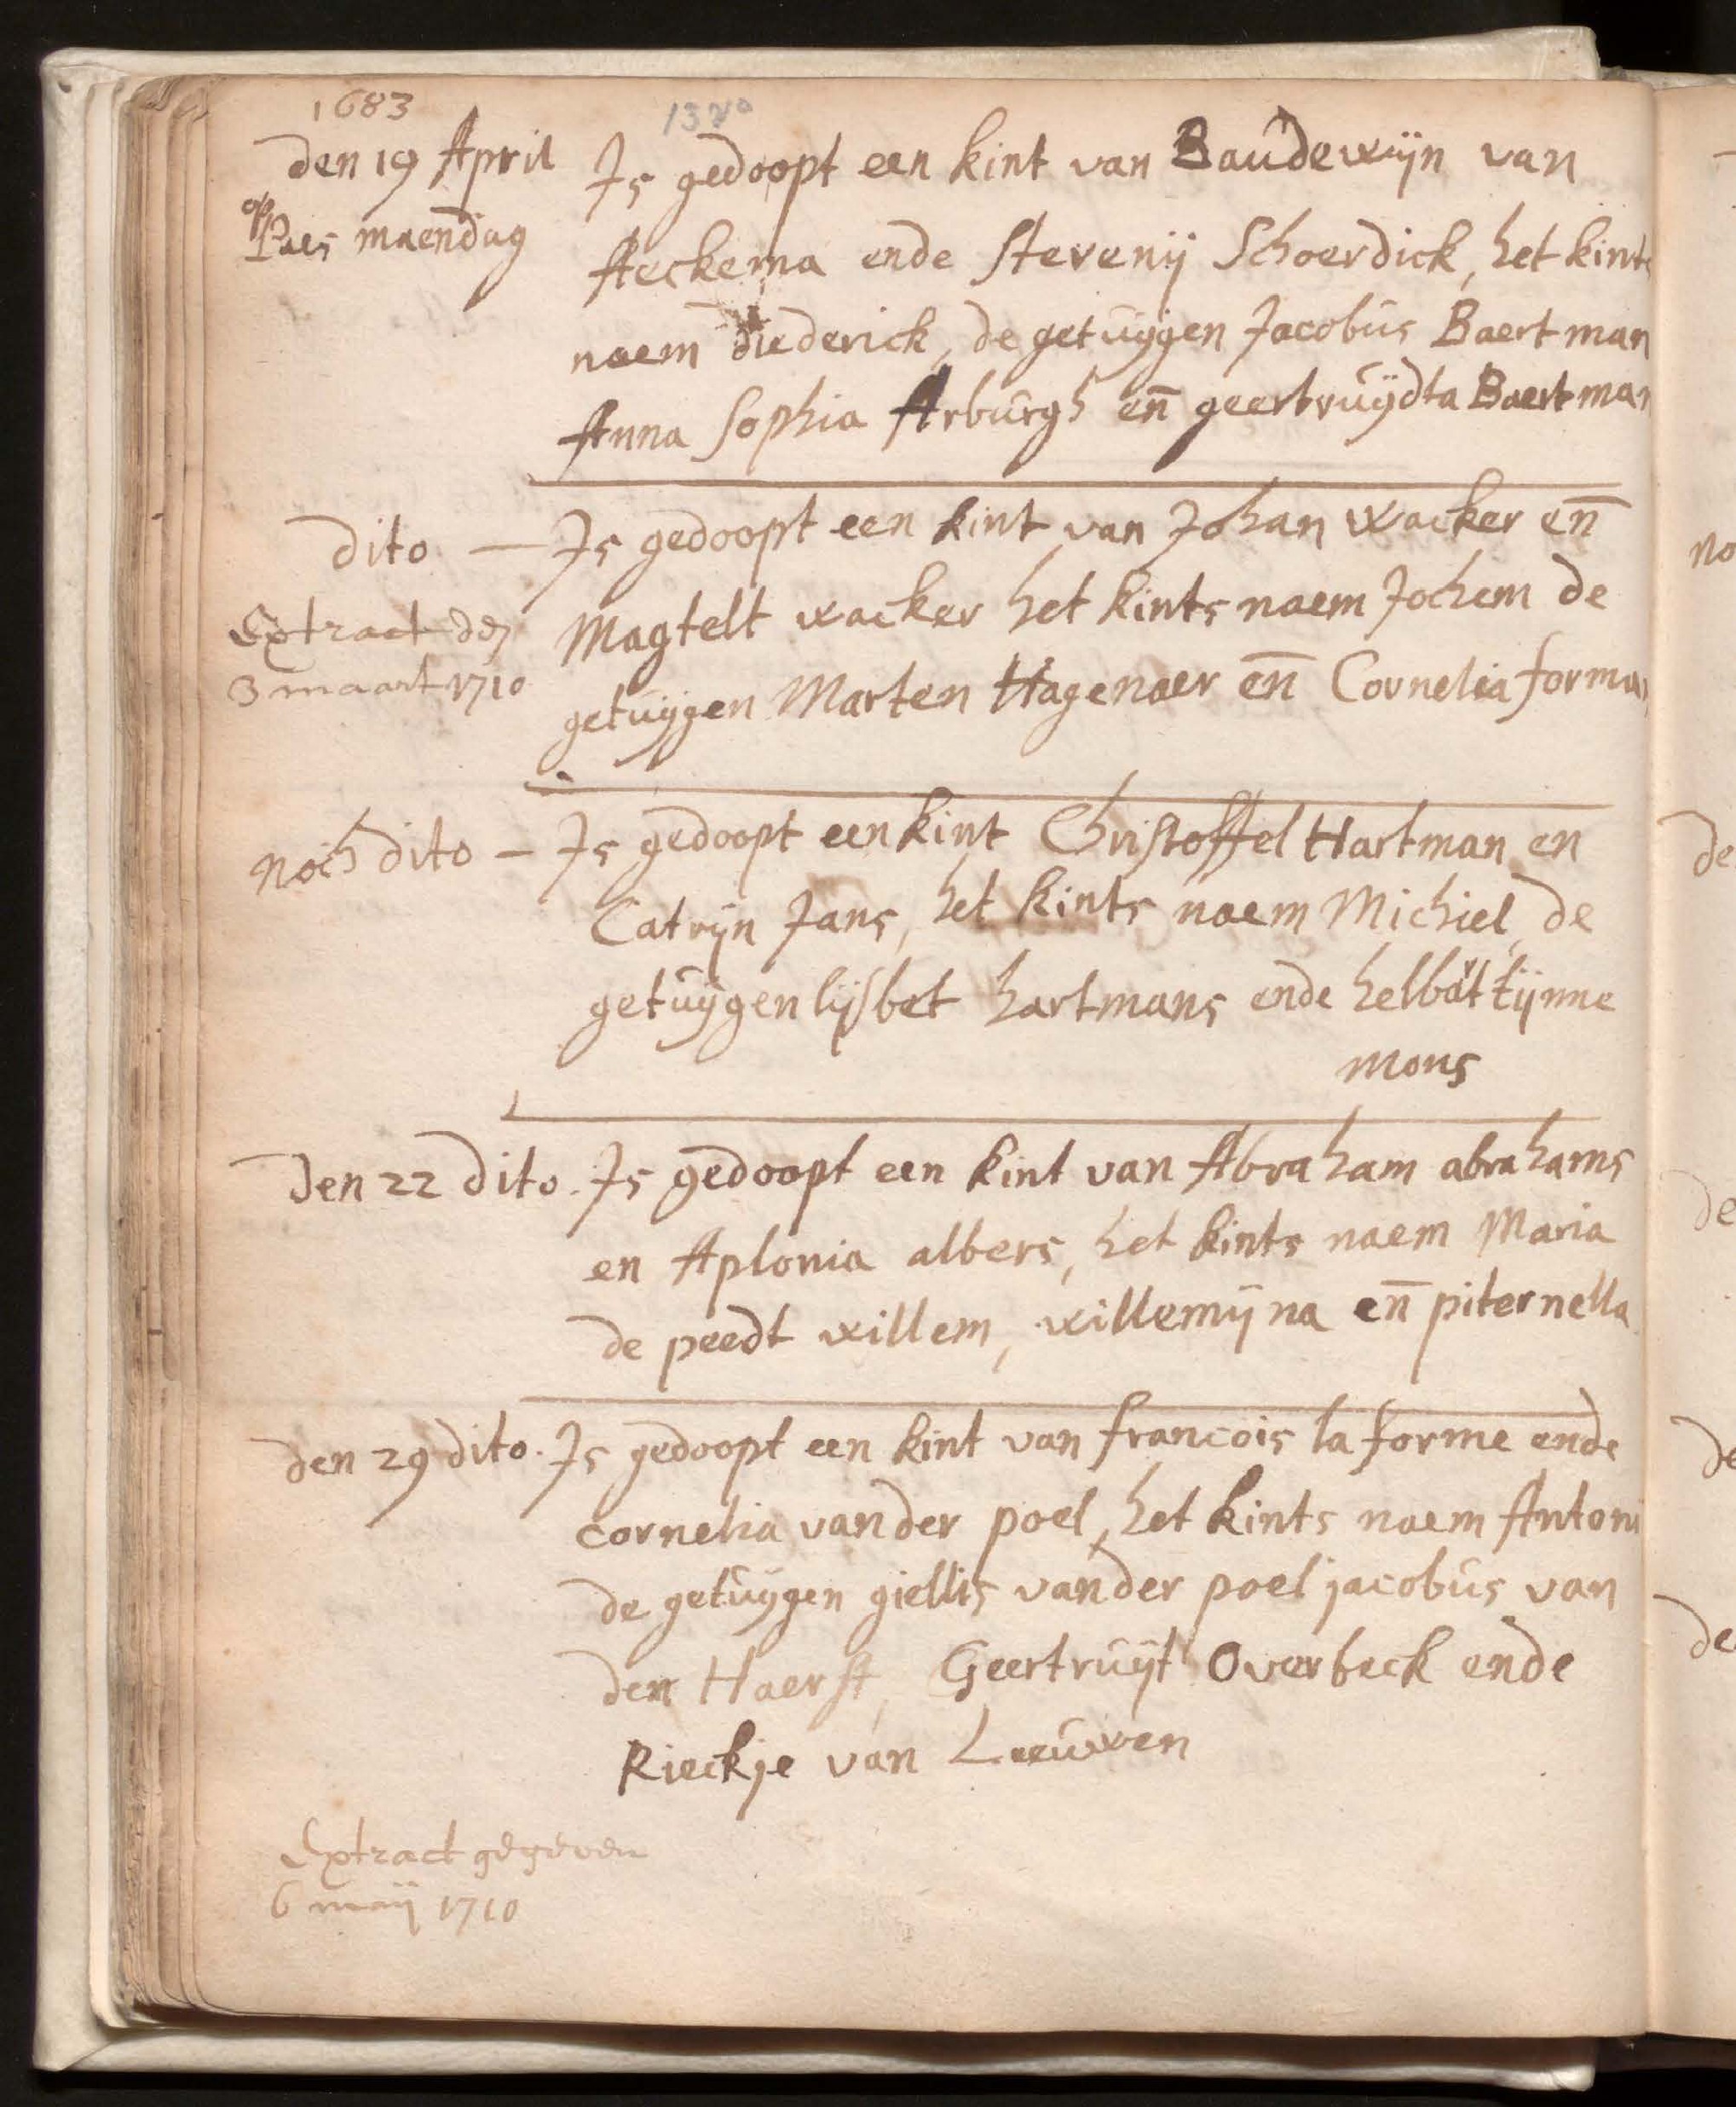 1683
13vo
den 19 April Is gedoopt een kint van Baudewijn van
op
Paes maendag
Aeckema ende Stevenij Schoerdick, het kints
naem diederick, de getuijgen Jacobus Baertman
Anna Sophia Arburgh en̄ geertruijdta Baertman
dito — Is gedoopt een kint van Johan wacker en̄
Magtelt wacker het kints naem Jochem de
Extract den
3 maart 1710
getuijgen Marten Hagenaer en̄ Cornelia forman
noch dito — Is gedoopt een kint Christoffel Hartman en
Catrijn Jans, het kints naem Michiel, de
getuijgen lijsbet hartmans ende tijnne
mons
den 22 dito. Is gedoopt een kint van Abraham abrahams
en Aplonia albers, het kints naem Maria
de peedt willem, willemijna en̄ piternella
den 29 dito. Is gedoopt een kint van francois la forme ende
cornelia vander poel, het kints naem Antoni
de getuijgen giellis vander poel jacobus van
den Haerst, Geertruijt Overbeck ende
Rieckje van Leeuwen
Extract gegeven
6 maij 1710
no
de
de
de
de